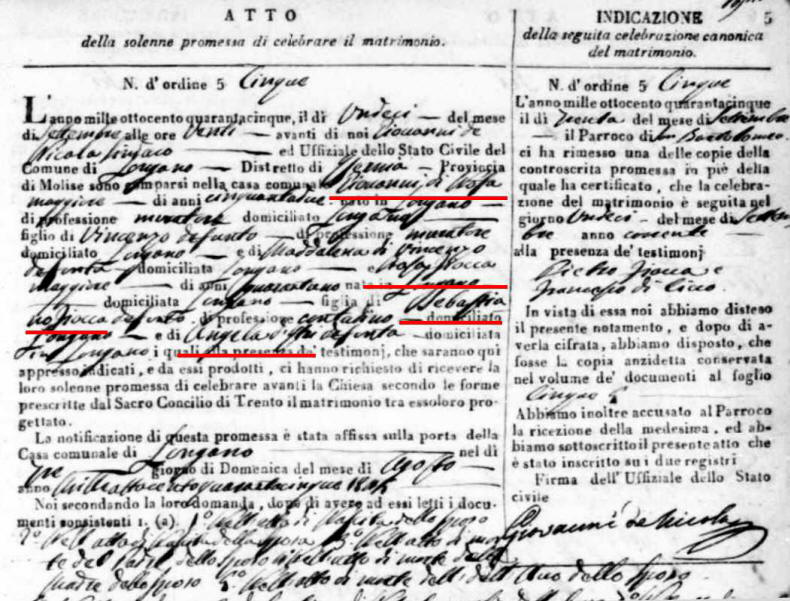 ATTO
della solenne promessa di celebrare il matrimonio.
N. d'ordine 5 Cinque
L'anno mille ottocento quarantacinque, il dì Undeci del mese
di Settembre alle ore Venti avanti di noi Giovanni de
Nicola Sindaco ed Uffiziale dello Stato Civile del
Comune di Longano Distretto di Isernia Provincia
di Molise sono comparsi nella casa comunale Giovanni di Rosa
maggiore di anni cinquantadue nato in Longano
di professione muratore domiciliato Longano
figlio di Vincenzo defunto di professione muratore
domiciliato Longano e di Maddalena di Vincenzo
defunta domiciliata Longano e Rosa Fiocca
maggiore di anni quarantano nata in Longano
domiciliata Longano figlia di Sebastia
no Fiocca defunto di professione contadino domiciliato
Longano e di Angela defunta domiciliata
in Longano i quali alla presenza de' testimonj, che saranno qui
appresso indicati, e da essi prodotti, ci hanno richiesto di ricevere la
loro solenne promessa di celebrare avanti la Chiesa secondo le forme
prescritte dal Sacro Concilio di Trento il matrimonio tra essoloro pro-
gettato.
La notificazione di questa promessa è stata affissa sulla porta della
Casa comunale di Longano nel dì
tre giorno di Domenica del mese di Agosto
anno Mille ottocento quarantacinque 1845
Noi secondando la loro domanda, dopo di avere ad essi letti i docu-
menti consistenti 1. (a). 1° Nell'atto di nascita dello sposo
2° Nell'atto di nascita della sposa 3° Nell'atto di mor
te del Padre dello sposo 4° Nell'atto di morte della
Madre dello sposo 5° Nell'atto di morte dell' Avo dello sposo
INDICAZIONE 5
della seguita celebrazione canonica
del matrimonio.
N. d'ordine 5 Cinque
L'anno mille ottocento quarantacinque
il dì trenta del mese di Settembre
il Parroco di San Bartolomeo
ci ha rimesso una delle copie della
controscritta promessa in piè della
quale ha certificato, che la celebra-
zione del matrimonio è seguita nel
giorno Undeci del mese di Settem
bre anno corrente
alla presenza de' testimonj
Pietro Fiocca e
Francesco di Cicco
In vista di essa noi abbiamo disteso
il presente notamento, e dopo di a-
verla cifrata, abbiamo disposto, che
fosse la copia anzidetta conservata
nel volume de' documenti al foglio
Cinque 5
Abbiamo inoltre accusato al Parroco
la ricezione della medesima, ed ab-
biamo sottoscritto il presente atto che
è stato inscritto su i due registri
Firma dell' Uffiziale dello Stato
civile
Giovanni de Nicola